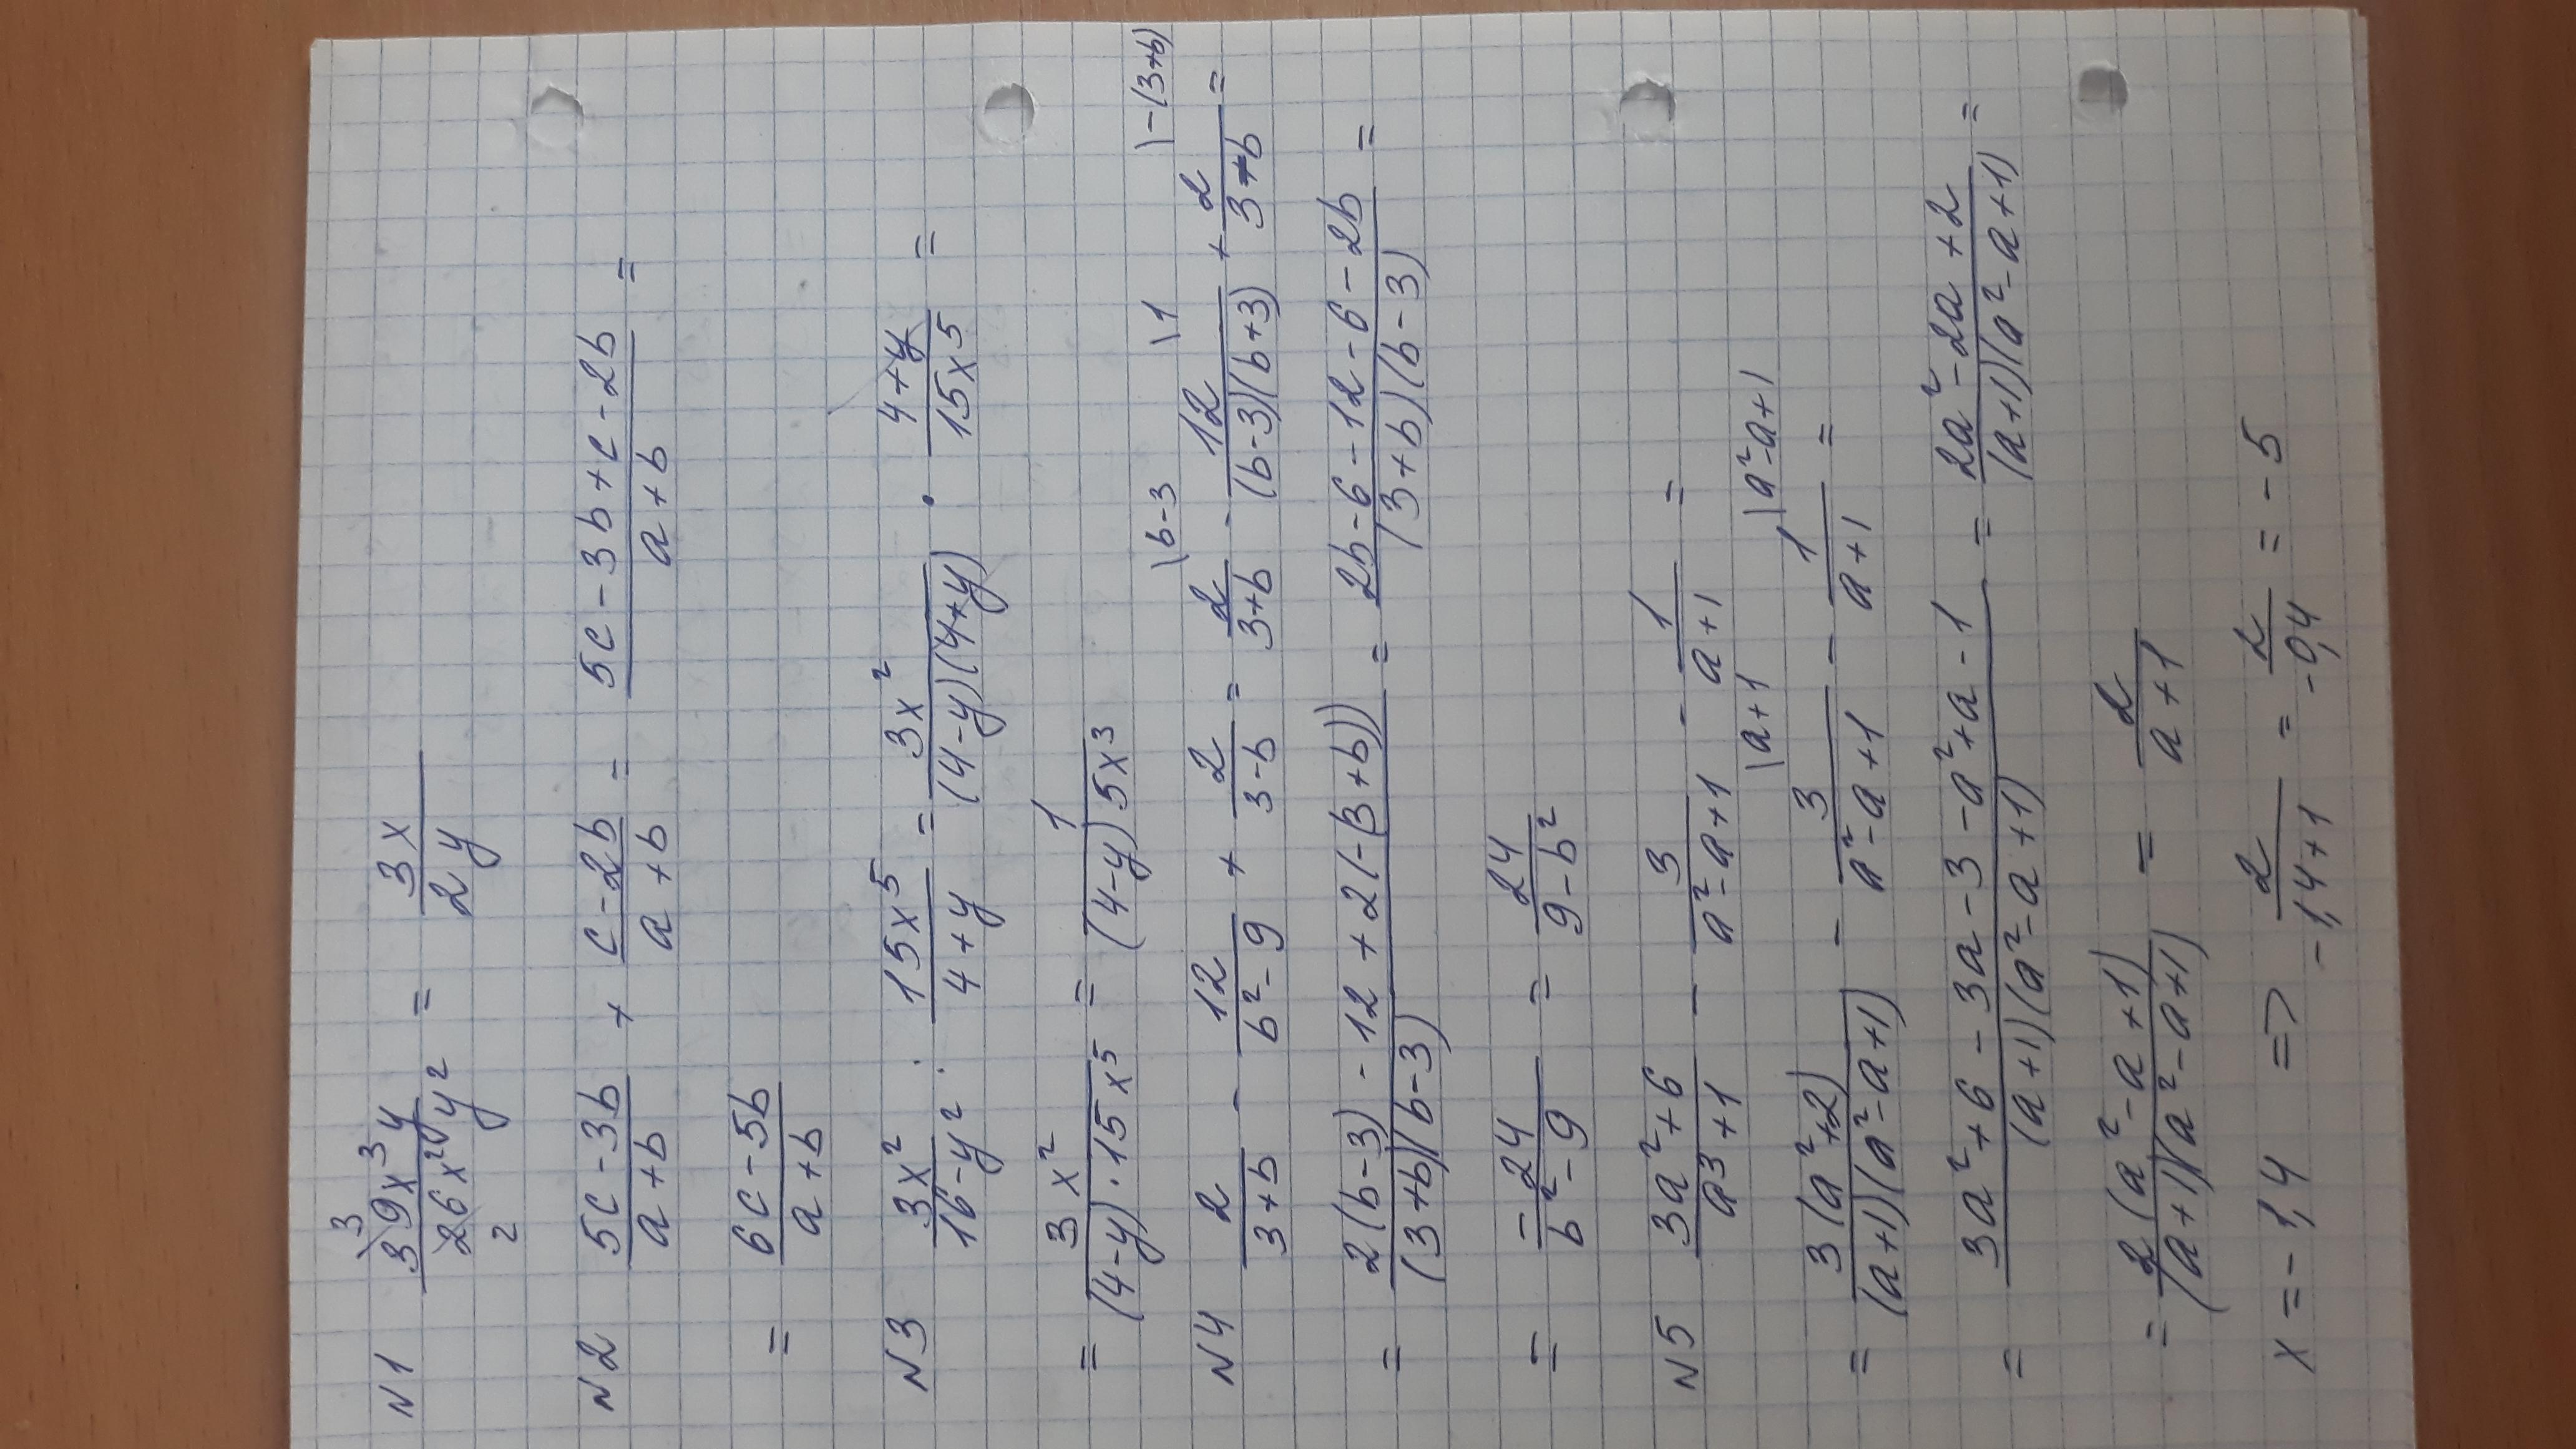 N1 39x³y/26x²y² = 3x/2y
3
2
N2 (5c-3b)/(a+b) + (c-2b)/(a+b) = (5c-3b+c-2b)/(a+b) =
= (6c-5b)/(a+b)
N3 3x²/(16-y²) : 15x⁵/(4+y) = 3x²/((4-y)(4+y)) · (4+y)/15x⁵ =
= 3x²/((4-y)·15x⁵) = 1/((4-y)5x³)
\b-3 \1 \-(3+b)
N4 2/(3+b) - 12/(b²-9) + 2/(3-b) = 2/(3+b) - 12/((b-3)(b+3)) + 2/(3+b) =
= (2(b-3)-12+2(-(3+b)))/((3+b)(b-3)) = (2b-6-12-6-2b)/((3+b)(b-3)) =
= -24/(b²-9) = 24/(9-b²)
N5 (3a²+6)/(a³+1) - 3/(a²-a+1) - 1/(a+1) =
\a+1 \a²-a+1
= 3(a²+2)/((a+1)(a²-a+1)) - 3/(a²-a+1) - 1/(a+1) =
= (3a²+6-3a-3-a²+a-1)/((a+1)(a²-a+1)) = (2a²-2a+2)/((a+1)(a²-a+1)) =
= 2(a²-a+1)/((a+1)(a²-a+1)) = 2/(a+1)
x=-1,4 => 2/(-1,4+1) = 2/-0,4 = -5